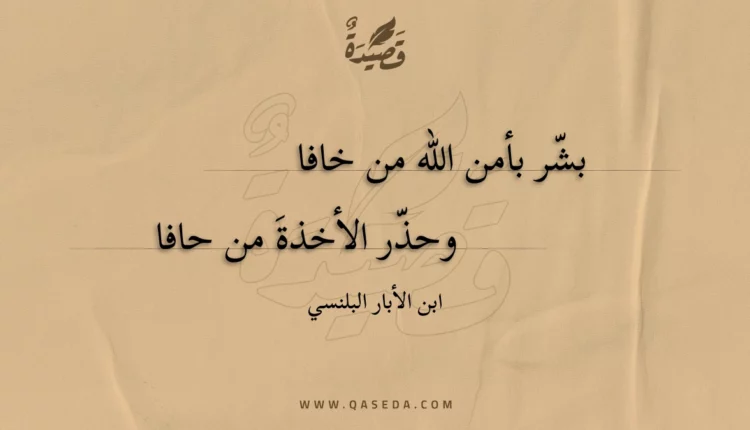 قَصِيْدَةٌ
بشّر بأمن الله من خافا
وحذّر الأخذةَ من حافا
ابن الأبار البلنسي
WWW.QASEDA.COM